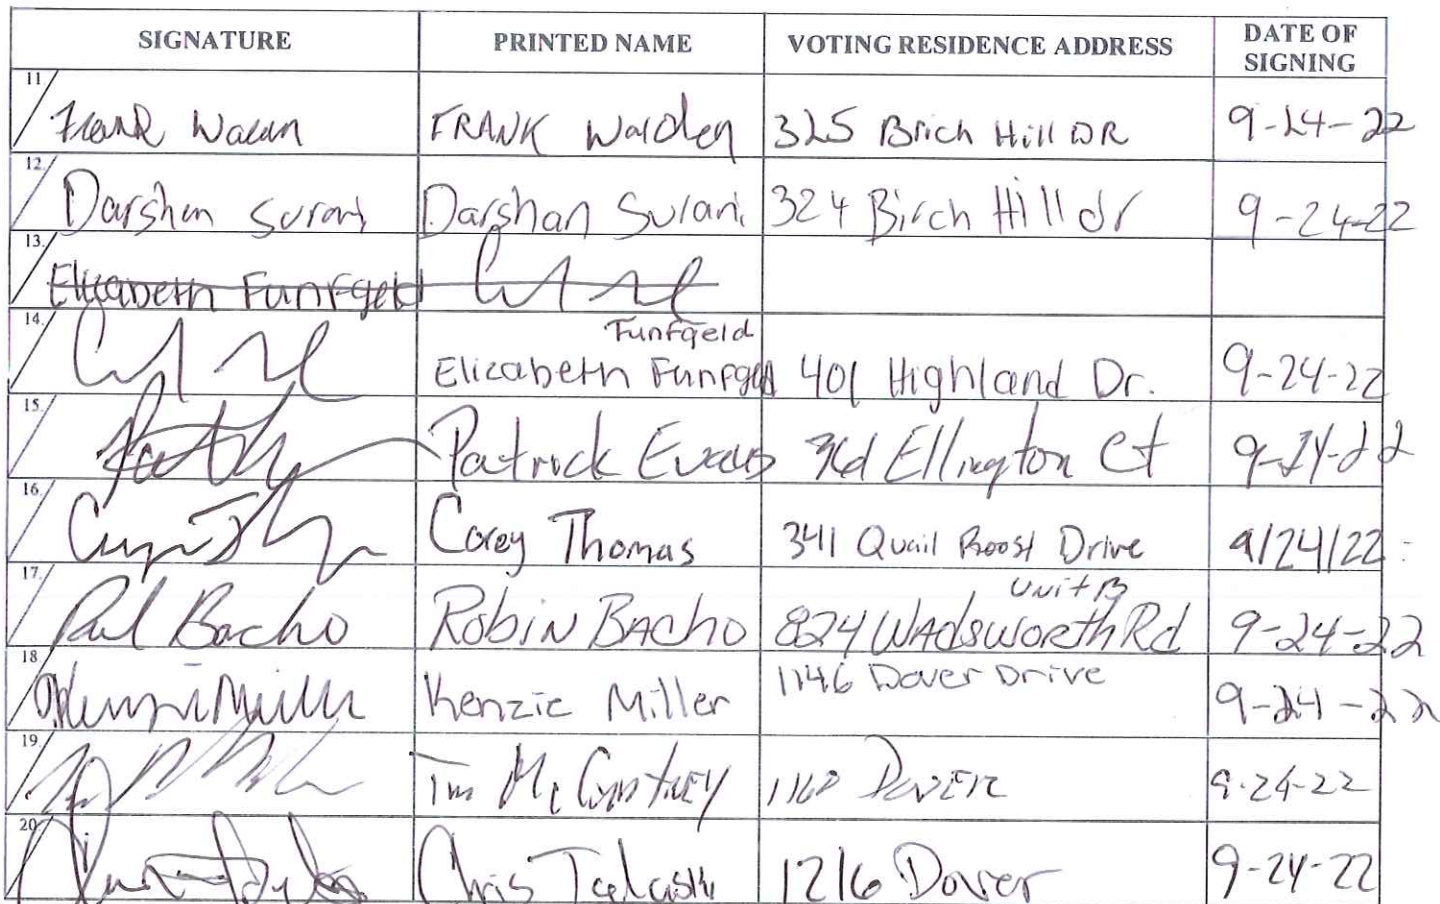 SIGNATURE PRINTED NAME VOTING RESIDENCE ADDRESS DATE OF SIGNING
11 Frank Walden FRANK Walden 325 Brich Hill DR 9-24-22
12. Darshan Surani Darshan Surani 324 Birch Hill dr 9-24-22
13. Elizabeth Funfgeld
14. Funfgeld
Elizabeth Funfgeld 401 Highland Dr. 9-24-22
15. Patrick Evans Ellington Ct 9-24-22
16. Corey Thomas 341 Quail Roost Drive 9/24/22
17. Bacho Robin BAcho 824 WAdsworth Rd Unit B 9-24-22
18. Kenzie Miller Kenzie Miller 1146 Dover Drive 9-24-22
19. Tim McCartney DOVER 9-24-22
20. Chris 1216 Dover 9-24-22